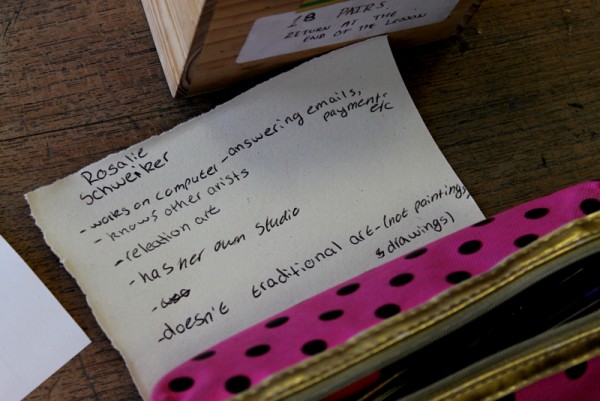 18 PAIRS.
RETURN AT THE
END OF THE LESSON
Rosalie
Schweiker
- works on computer - answering emails,
payment. etc
- knows other arists
- releation art
- has her own studio
-
- doesn't traditional art - (not paintings
& drawings)